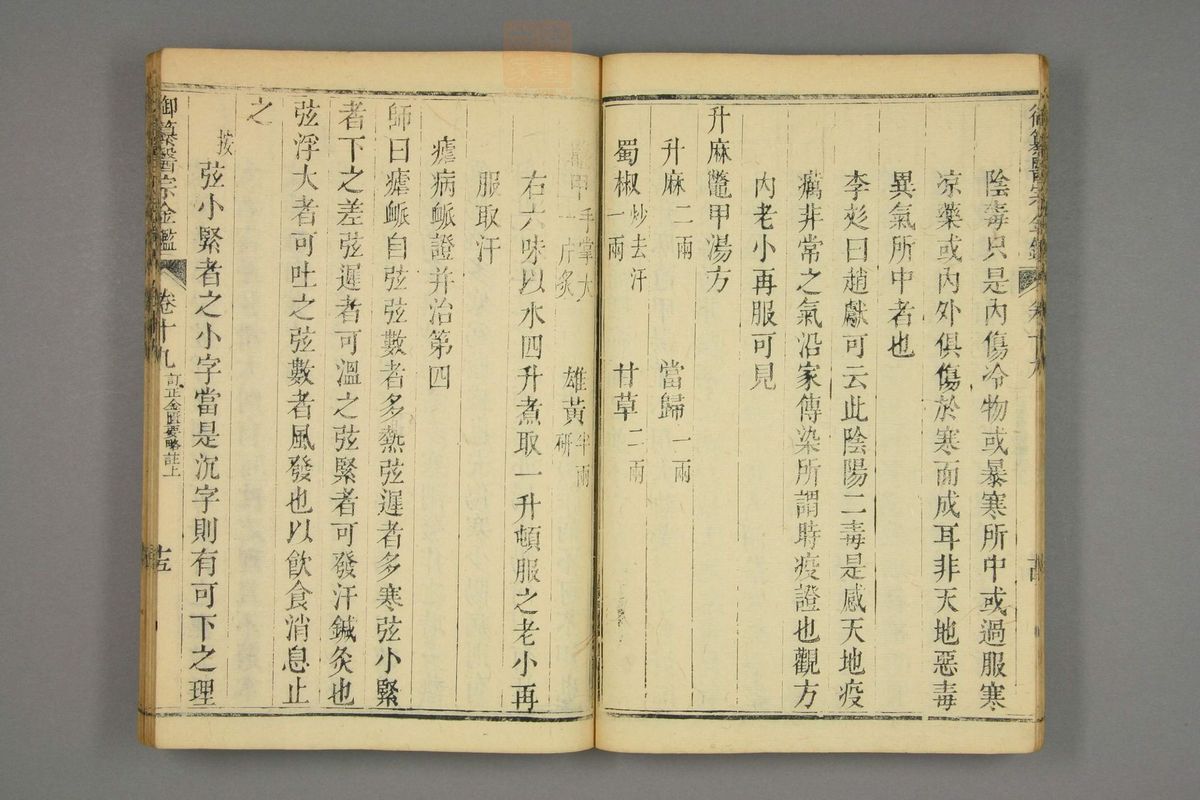 御纂醫宗金鑑
陰毒只是內傷冷物或暴寒所中或過服寒
凉藥或內外俱傷於寒而成耳非天地惡毒
異氣所中者也
李彣曰趙獻可云此陰陽二毒是感天地疫
癘非常之氣沿家傳染所謂時疫證也觀方
內老小再服可見
升麻鼈甲湯方
升麻二兩 當歸一兩
蜀椒炒去汗一兩 甘草二兩
鼈甲手掌大一片炙 雄黃半兩研
右六味以水四升煮取一升頓服之老小再
服取汗
瘧病脈證并治第四
師曰瘧脈自弦弦數者多熱弦遲者多寒弦小緊
者下之差弦遲者可溫之弦緊者可發汗鍼灸也
弦浮大者可吐之弦數者風發也以飲食消息止
之
按弦小緊者之小字當是沉字則有可下之理
御纂醫宗金鑑 卷十九 訂正金匱要略註上 十五